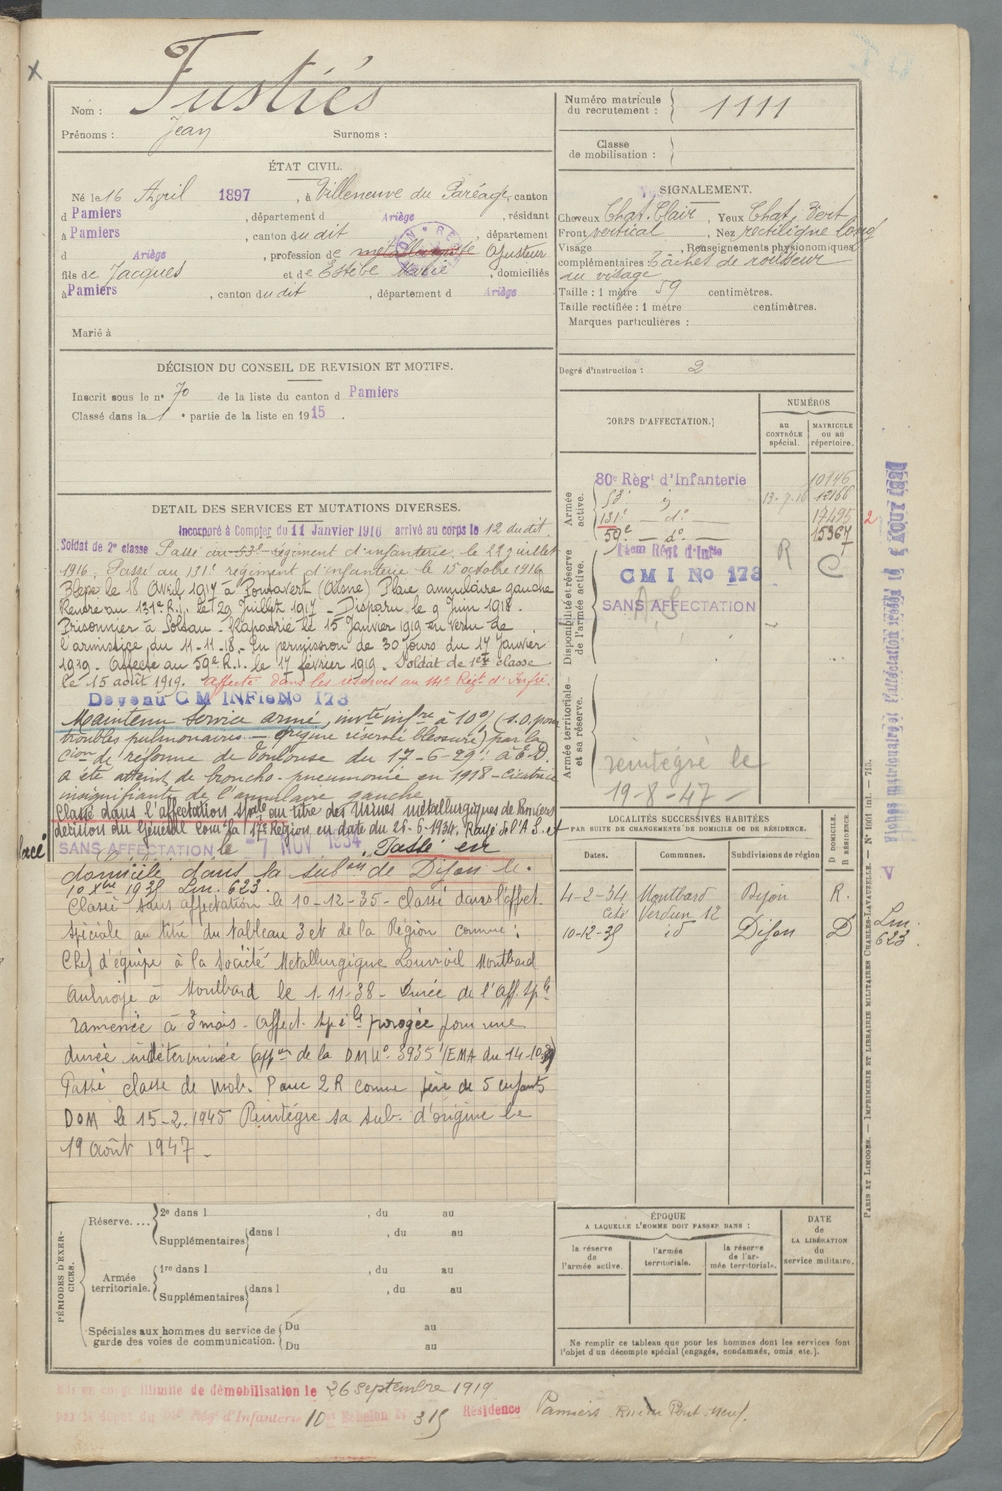 Nom : Fustiés
Prénoms : Jean Surnoms :
ÉTAT CIVIL.
Né le 16 Avril 1897, à Villeneuve du Paréage, canton
d Pamiers, département d Ariège, résidant
à Pamiers, canton du dit, département
d Ariège, profession de métallurgiste Ajusteur
fils de Jacques et de Estèbe Marie, domiciliés
à Pamiers, canton du dit, département d Ariège
Marié à
DÉCISION DU CONSEIL DE REVISION ET MOTIFS.
Inscrit sous le n° 70 de la liste du canton d Pamiers
Classé dans la 1e partie de la liste en 1915.
DETAIL DES SERVICES ET MUTATIONS DIVERSES.
Incorporé à Compter du 11 Janvier 1916 arrivé au corps le 12 du dit.
Soldat de 2e classe Passé au 53e régiment d'infanterie, le 22 Juillet
1916. Passé au 131e régiment d'infanterie le 15 octobre 1916
Blessé le 18 Avril 1917 à Pontavert (Aisne) Plaie annulaire gauche
Rentré au 131e R.I. le 29 Juillet 1917 - Disparu le 9 Juin 1918.
Prisonnier à Soltau. Rapatrié le 15 Janvier 1919 en vertu de
l'armistice du 11-11-18. En permission de 30 jours du 17 Janvier
1919. Affecté au 59e R.I. le 17 février 1919. Soldat de 1ere classe
le 15 août 1919. Affecté dans les réserves au 14e Régt d'Infie.
Devenu CM INFie No 173
Maintenu Service armé, invté infre à 10% (s.o. pour
troubles pulmonaires - origine réserve blessure) par la
Cion de réforme de Toulouse du 17-6-29: à E.D.
a été atteint de broncho-pneumonie en 1918 - Cicatrice
insignifiante de l'annulaire gauche
Classé dans l'affectation spale au titre des Usines métallurgiques de Pamiers
décision du Général Comt la 17e Région en date du 25-6-1934. Rayé de l'A.S. et
placé SANS AFFECTATION le -7 NOV 1934. Passé en
domicile dans la subon de Dijon le
10 Xbre 1935 Lm. 623.
Classé sans affectation le 10-12-35 - Classé dans l'affect.
spéciale au titre du tableau 3 et de la Région comme :
Chef d'équipe à la Société Métallurgique Louvroil Montbard
Aulnoye à Montbard le 1-11-38 - Durée de l'Aff. sple
ramenée à 3 mois - Affect. spéle prorogée pour une
durée indéterminée (appon de la DM N° 3935 1/EMA du 14-10-39)
Passé classe de mob. 2 R comme père de 5 enfants
DOM le 15-2-1945 Réintégré sa sub. d'origine le
19 août 1947 -
PÉRIODES D'EXERCICES.
Réserve.... 2e dans l , du au
Supplémentaires dans l , du au
Armée territoriale. 1re dans l , du au
Supplémentaires dans l , du au
Spéciales aux hommes du service de garde des voies de communication. Du au
Du au
Mis en congé illimité de démobilisation le 26 Septembre 1919
par le dépôt du 59e Régt d'Infanterie 10e Echelon N° 315 Résidence Pamiers Rue du Pont-Neuf.
Numéro matricule du recrutement : 1111
Classe de mobilisation :
SIGNALEMENT.
Cheveux Chat. Clair, Yeux Chat. Vert
Front vertical, Nez rectiligne long
Visage , Renseignements physionomiques
complémentaires : Tâches de rousseur
au visage
Taille : 1 mètre 59 centimètres.
Taille rectifiée : 1 mètre centimètres.
Marques particulières :
Degré d'instruction : 2
CORPS D'AFFECTATION.
NUMÉROS
au CONTRÔLE spécial.
MATRICULE OU AU répertoire.
Armée active.
80e Régt d'Infanterie 10146
53e 13-7-16 12166
131e do 17495 2
59e do 15367
Disponibilité et réserve de l'armée active.
14em Régt d'Infie
CMI No 173 R C
A.S
SANS AFFECTATION
Armée territoriale et sa réserve.
réintégré le
19-8-47 -
LOCALITÉS SUCCESSIVES HABITÉES
PAR SUITE DE CHANGEMENTS DE DOMICILE OU DE RÉSIDENCE.
Dates. Communes. Subdivisions de région D DOMICILE. R RÉSIDENCE.
4-2-34 Montbard Dijon R.
Cité Verdun 12
10-12-35 id Dijon D Lm. 623
ÉPOQUE
A LAQUELLE L'HOMME DOIT PASSER DANS :
la réserve de l'armée active.
l'armée territoriale.
la réserve de l'armée territoriale.
DATE de LA LIBÉRATION du service militaire.
Ne remplir ce tableau que pour les hommes dont les services font
l'objet d'un décompte spécial (engagés, condamnés, omis, etc.).
PARIS ET LIMOGES. — IMPRIMERIE ET LIBRAIRIE MILITAIRES CHARLES-LAVAUZELLE.